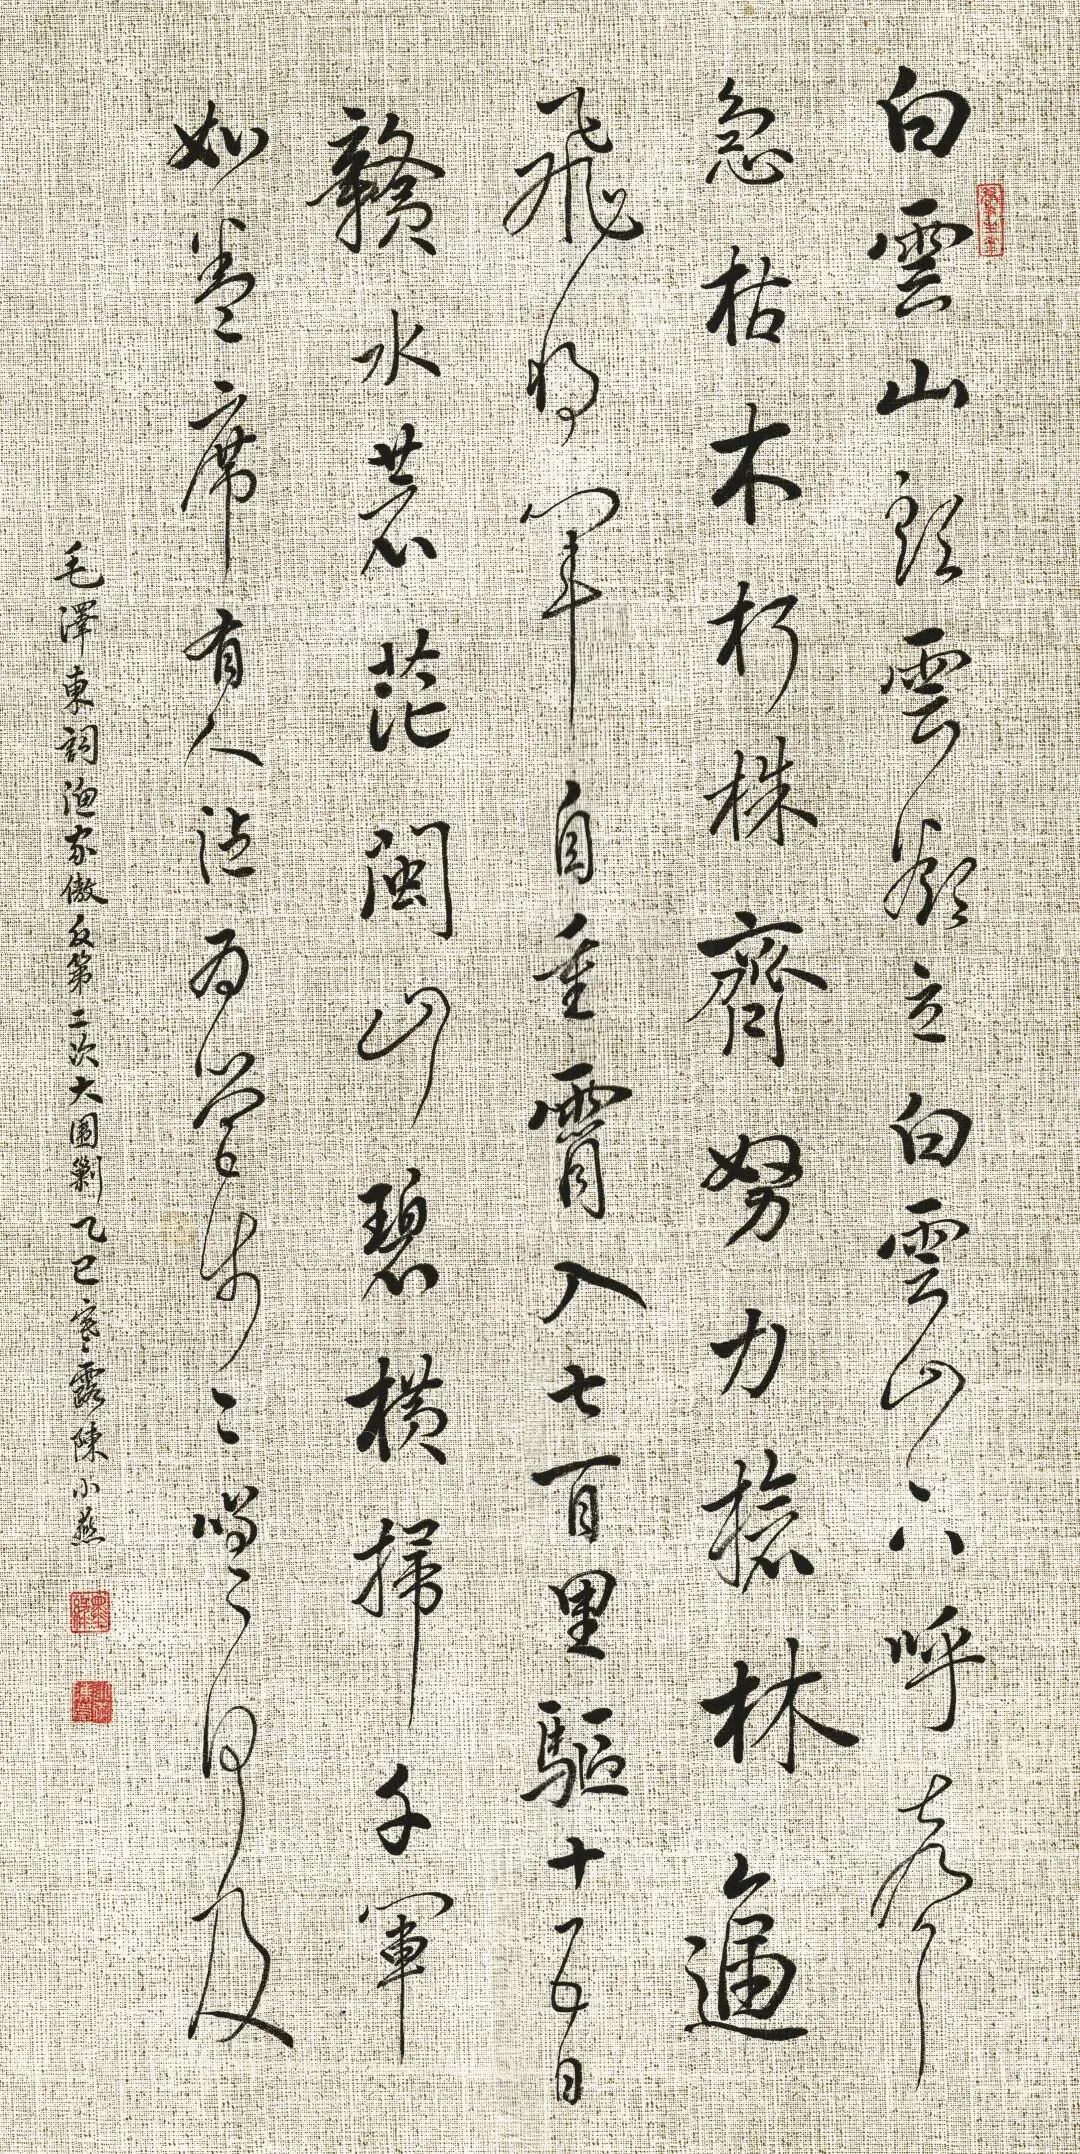 白雲山頭雲欲立白雲山下呼聲
急枯木朽株齊努力槍林逼
飛將軍自重霄入七百里驅十五日
贛水蒼茫閩山碧橫掃千軍
如卷席有人泣為營步〻嗟何及
毛澤東詞漁家傲反第二次大圍剿乙巳寒露陳小燕